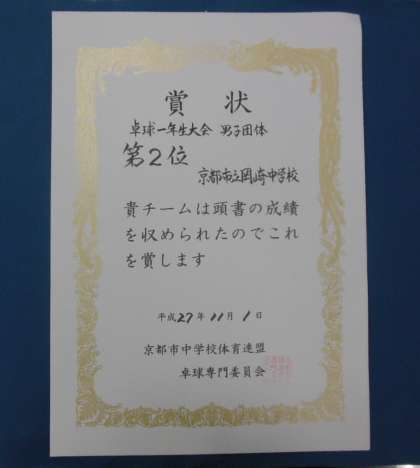 賞状
卓球一年生大会 男子団体
第2位
京都市立岡崎中学校
貴チームは頭書の成績
を収められたのでこれ
を賞します
平成27年11月1日
京都市中学校体育連盟
卓球専門委員会